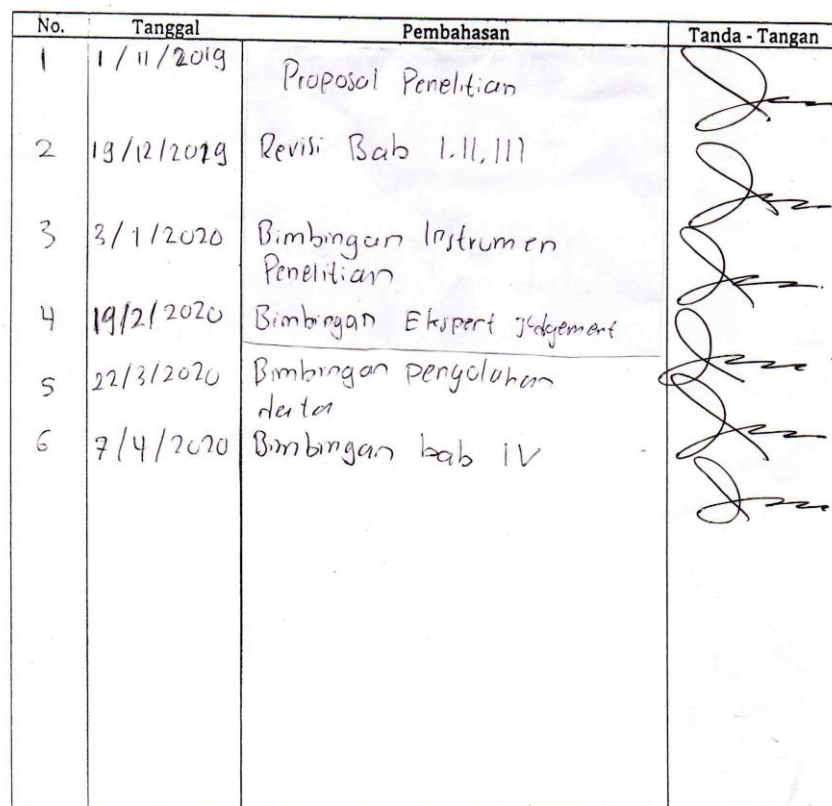 No. Tanggal Pembahasan Tanda - Tangan
1 1/11/2019 Proposal Penelitian
2 19/12/2019 Revisi Bab I.II,III
3 3/1/2020 Bimbingan Instrumen
Penelitian
4 19/2/2020 Bimbingan Ekspert Judgement
5 22/3/2020 Bimbingan pengolahan
data
6 7/4/2020 Bimbingan bab IV